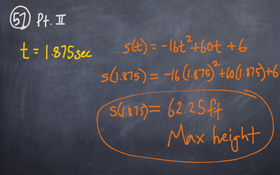 57 Pt. II
t = 1.875 sec
s(t) = -16t² + 60t + 6
s(1.875) = -16(1.875)² + 60(1.875) + 6
s(1.875) = 62.25 ft
Max height